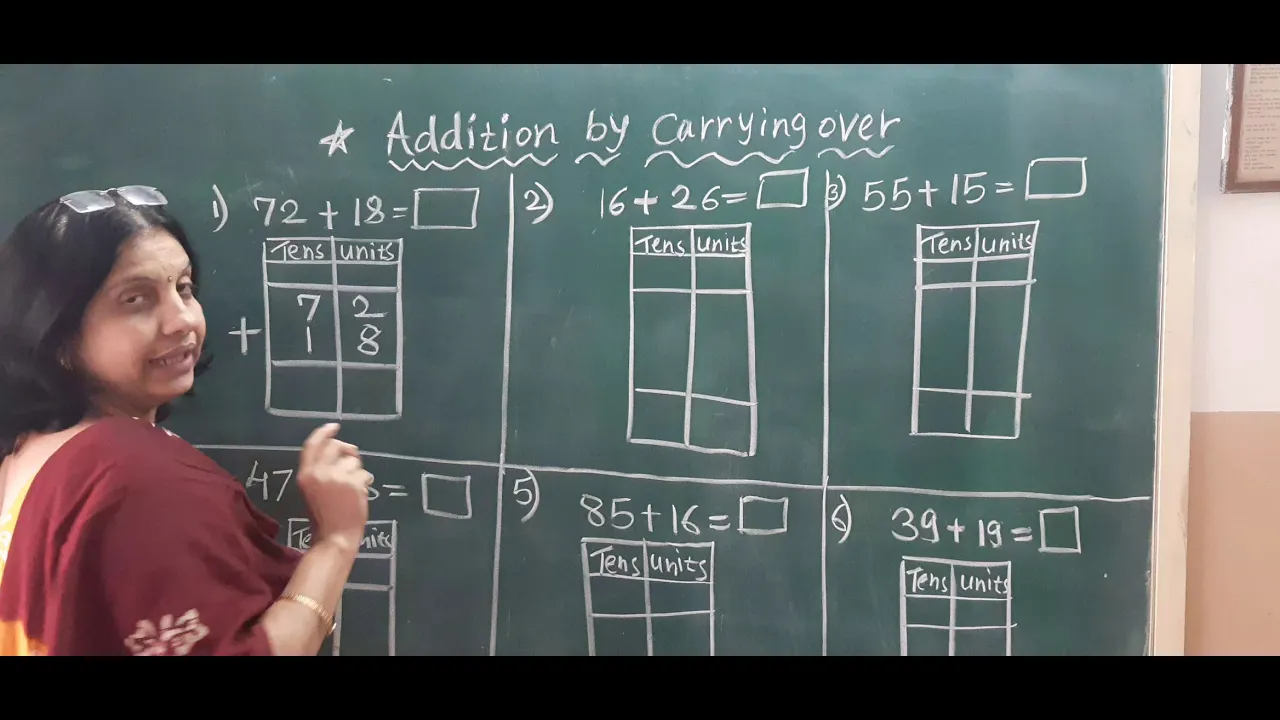 ★ Addition by Carrying over
1) 72 + 18 =
Tens units
7 2
+ 1 8
2) 16 + 26 =
Tens units
3) 55 + 15 =
Tens units
47 =
5) 85 + 16 =
Tens units
6) 39 + 19 =
Tens units